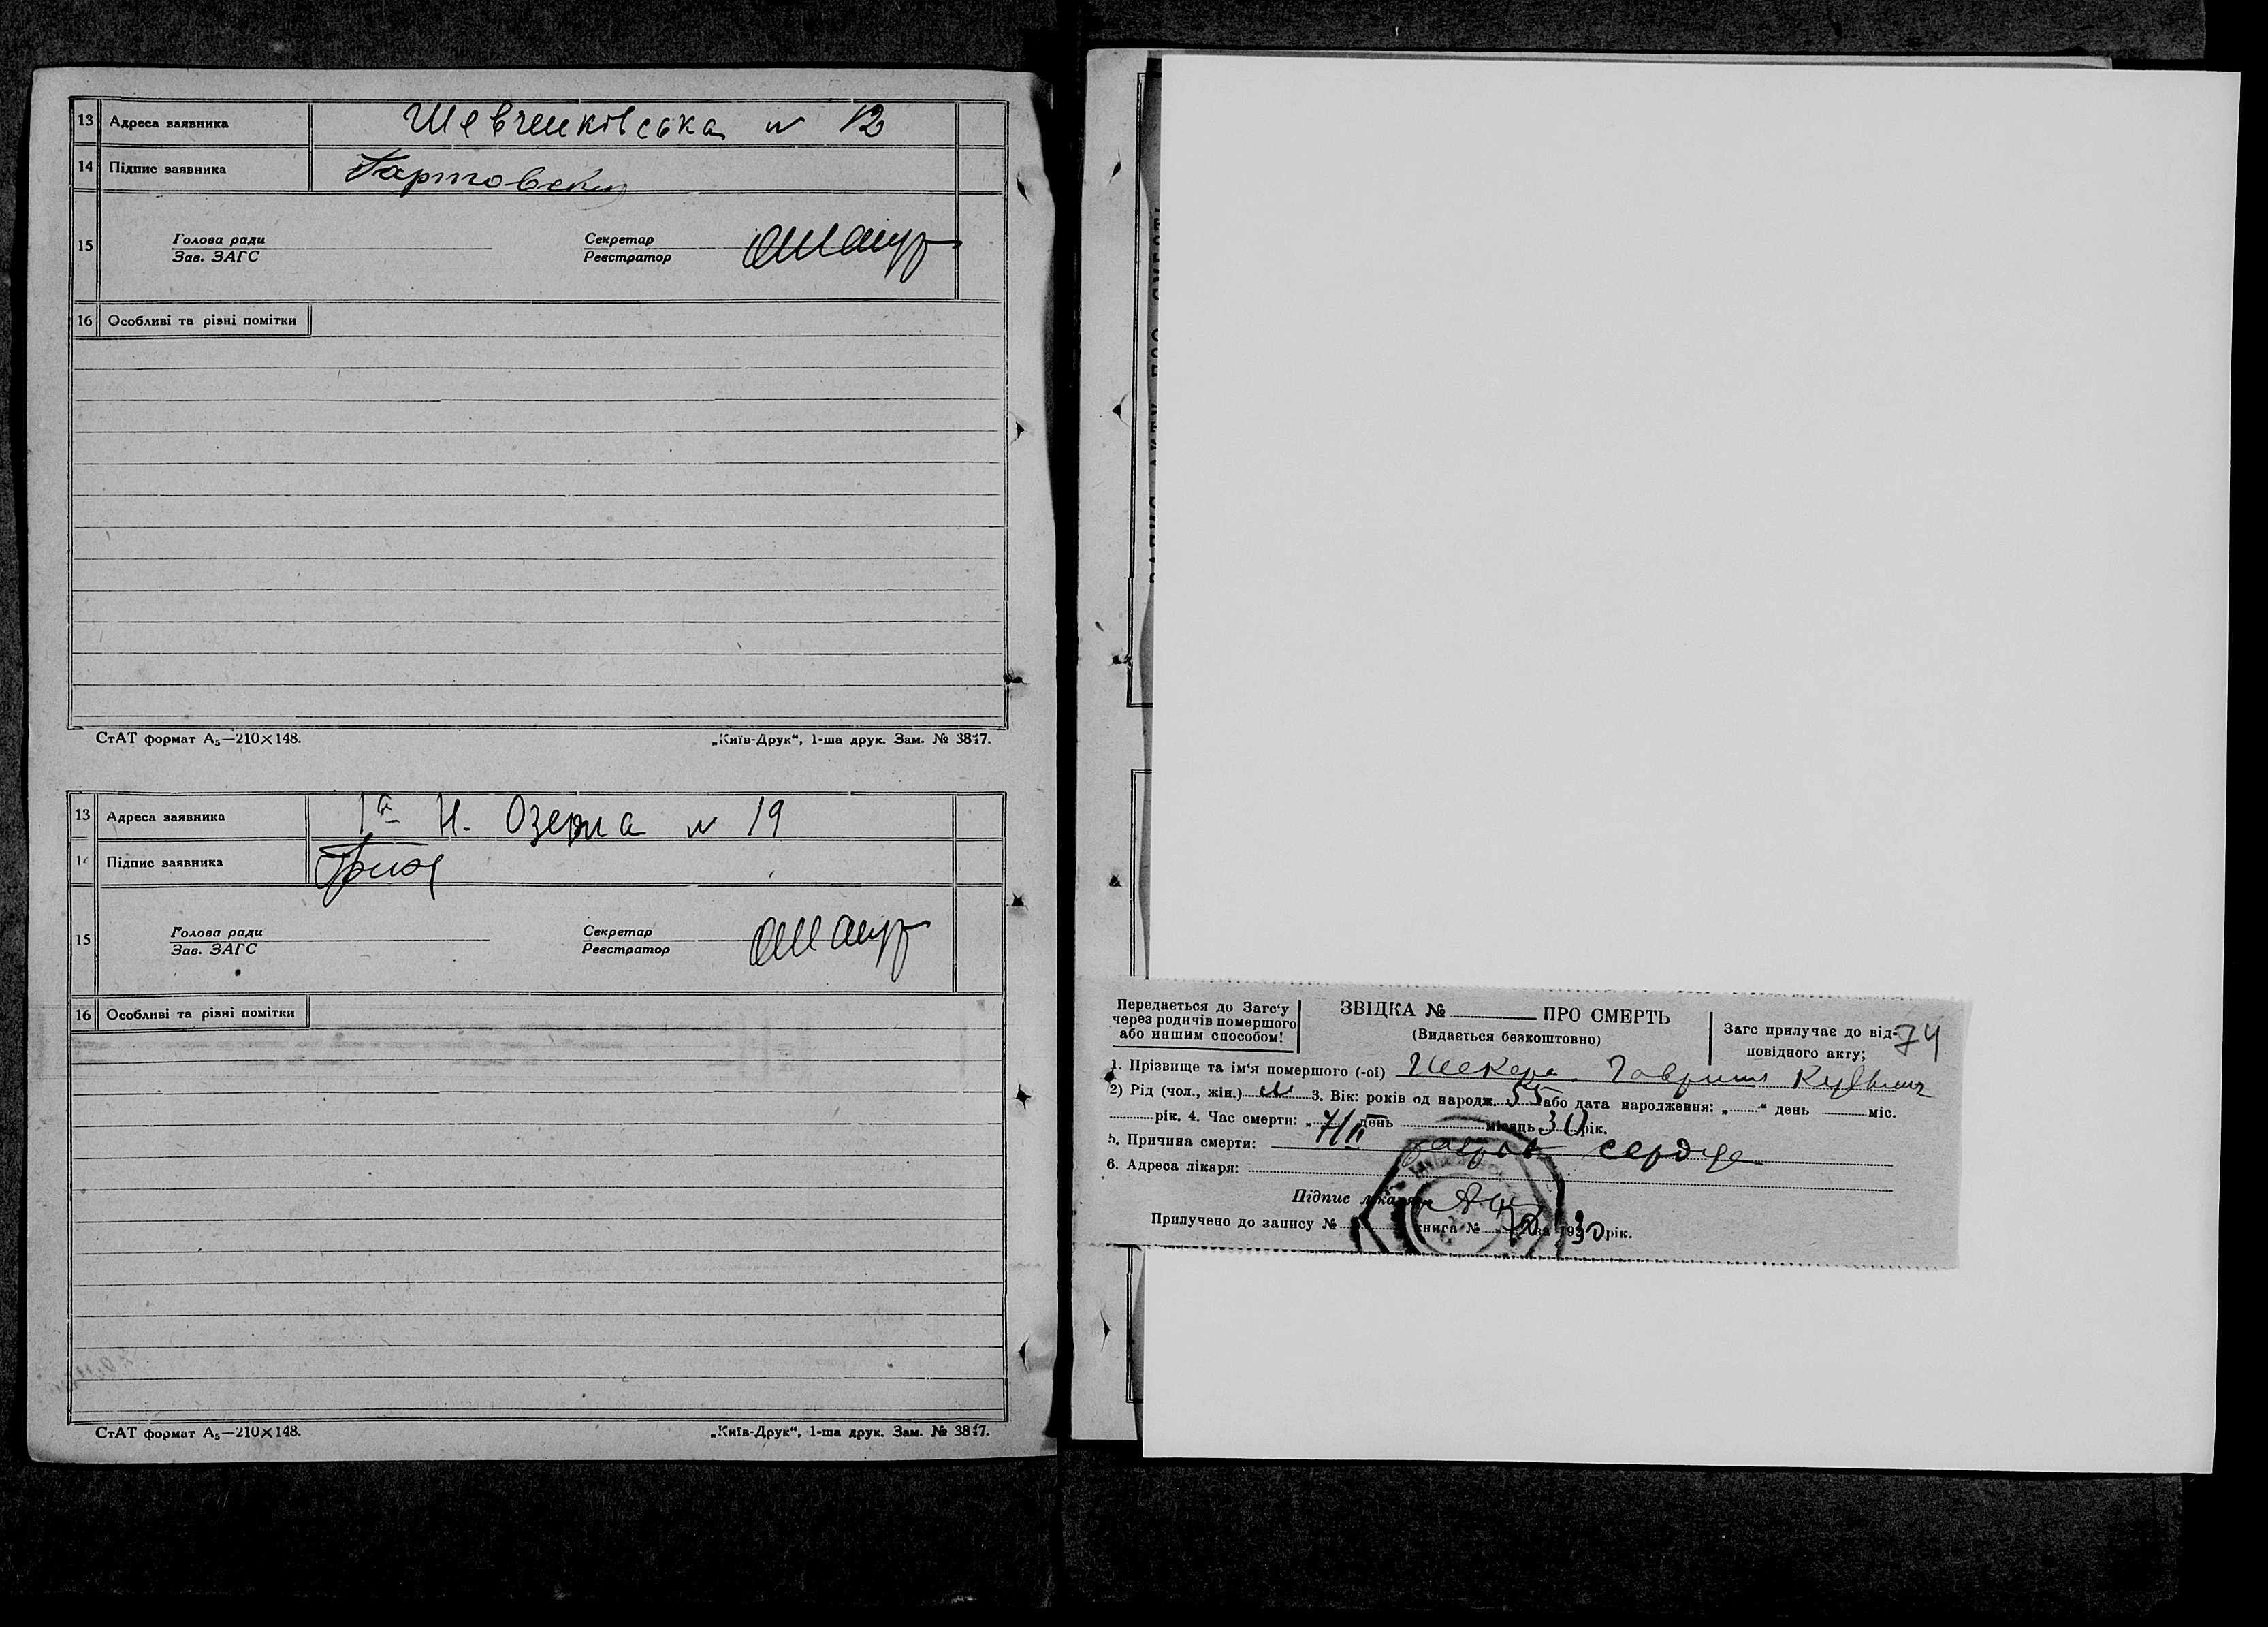 13 Адреса заявника Шевченківська N 12
14 Підпис заявника
15 Голова ради Секретар
Зав. ЗАГС Реєстратор
16 Особливі та різні помітки
СтАТ формат А₅—210×148. „Київ-Друк“, 1-ша друк. Зам. № 3817.
13 Адреса заявника 1а Н. Озерна N 19
14 Підпис заявника
15 Голова ради Секретар
Зав. ЗАГС Реєстратор
16 Особливі та різні помітки
СтАТ формат А₅—210×148. „Київ-Друк“, 1-ша друк. Зам. № 3817.
Передається до Загс'у
через родичів помершого
або иншим способом!
ЗВІДКА № ПРО СМЕРТЬ
(Видається безкоштовно)
Загс прилучає до від-
повідного акту;
74
1. Прізвище та ім'я помершого (-ої) Шекера
2) Рід (чол., жін.) м 3. Вік: років од народж. 55 або дата народження: „ “ день міс.
рік. 4. Час смерти: „ 7/II день місяць 30 рік.
5. Причина смерти: серця
6. Адреса лікаря:
Підпис лікаря
Прилучено до запису № книга № за 1930 рік.